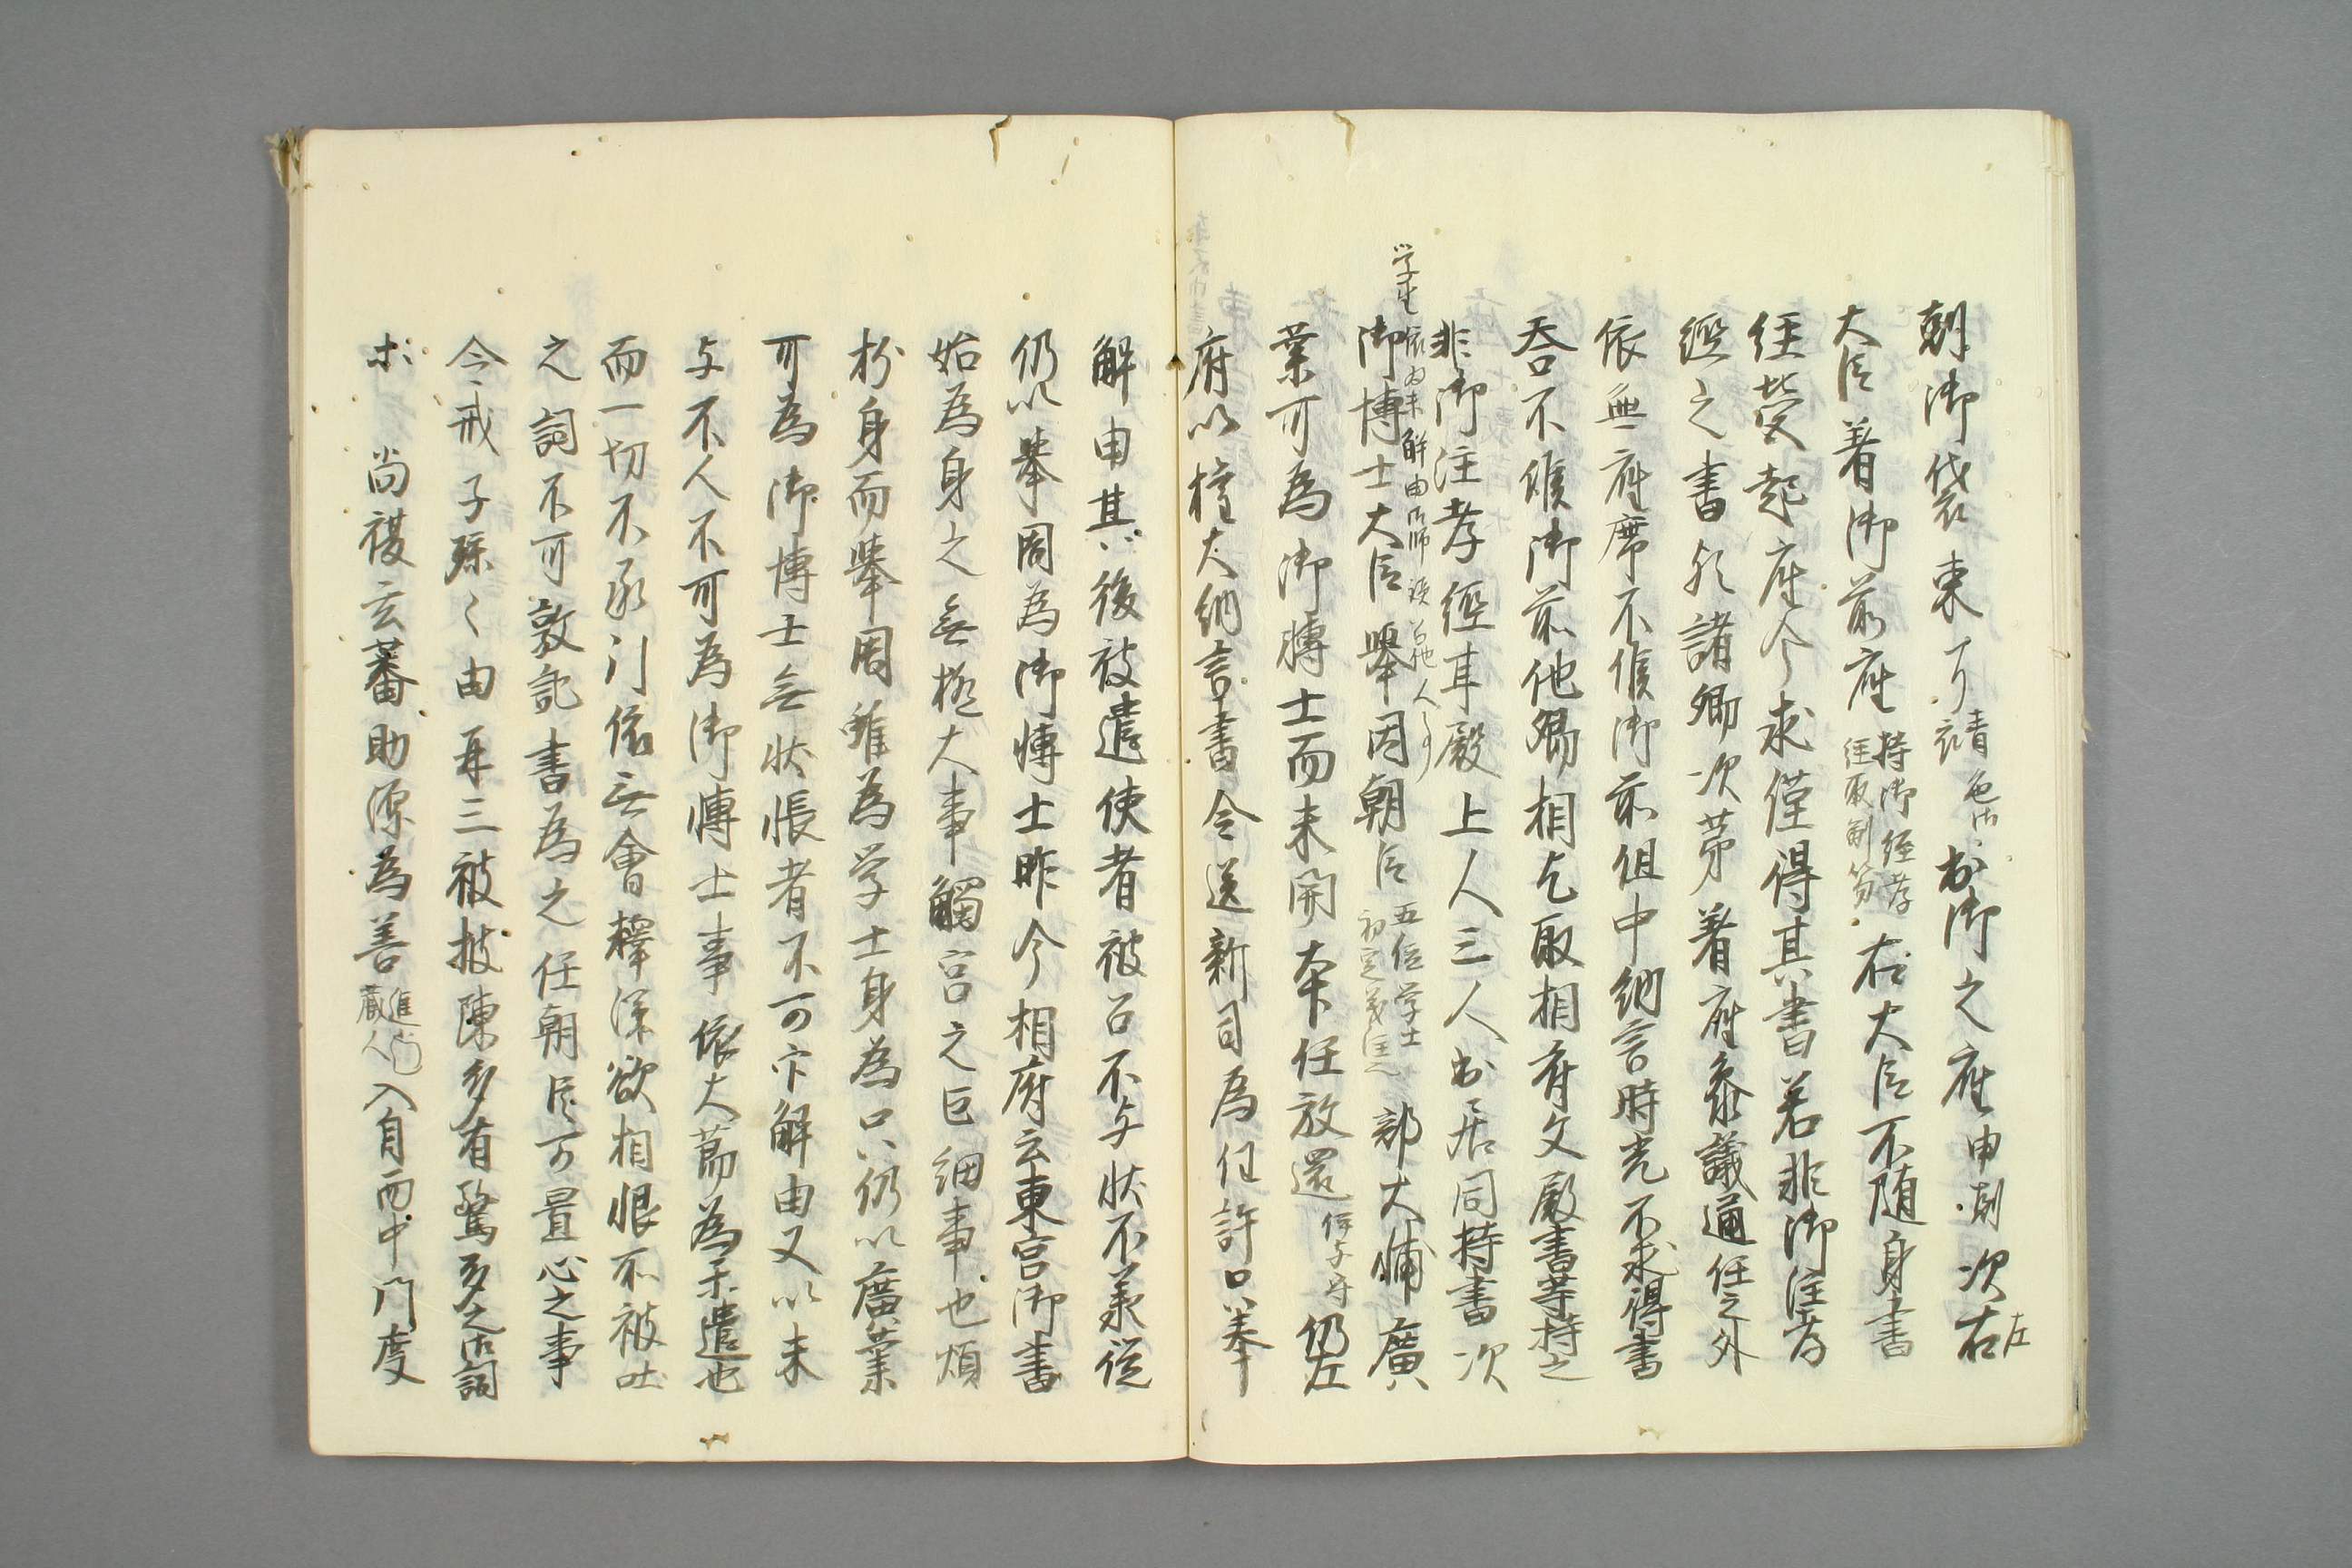 剋御袋束了青色御衣出御之座申剋次右左
大臣着御前座持御経孝経取副笏右大臣不随身書
経熒起座令求僅得其書若非御注孝
経之書歟諸卿次第着座参議通任之外
依無座席不候御前但中納言時光不求得書
吞不候御前他卿相乞取相府文殿書等持之
非御注孝経耳殿上人三人出居同持書次
学士依為未解由御師読召他人
御博士大臣舉周朝臣五位学士初定義匡部大輔廣
業可為御博士而未開本任放還伊与守仍左
府以權大納言書令送新司為任許只奉
解由其後被遣使者被召不与状不羕從
仍以舉周為御博士昨今相府云東宮御書
始為身之無極大事觸宮之巨細事也煩
於身而舉周雖為学士身為只仍以廣業
可為御博士無状悵者不可
解由又以未
与不人不可為御博士事依大菊為示遣也
而一切不承引依無會釋深欲相恨不被
之詞不可敢記書為之任朝臣可置心之事
今戒子孫々由再三被披陳多有驚多之御詞
尚複玄蕃助源為善進士蔵人入自西中門度